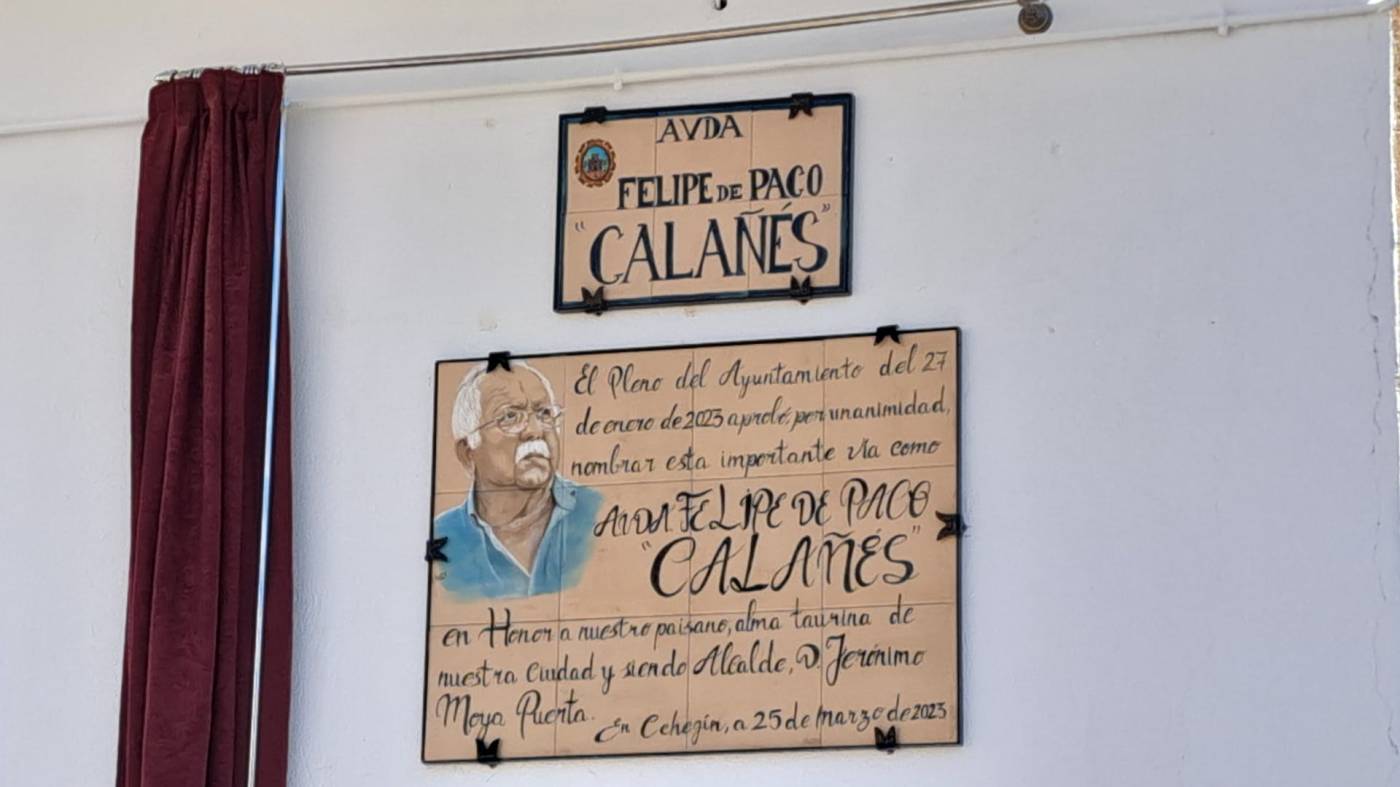 AVDA
FELIPE DE PACO
"CALAÑÉS"
El Pleno del Ayuntamiento del 27
de enero de 2023 aprobó, por unanimidad,
nombrar esta importante vía como
AVDA FELIPE DE PACO
"CALAÑÉS"
en Honor a nuestro paisano, alma taurina de
nuestra Ciudad y siendo Alcalde, D. Jerónimo
Moya Puerta.
En Cehegín, a 25 de marzo de 2023